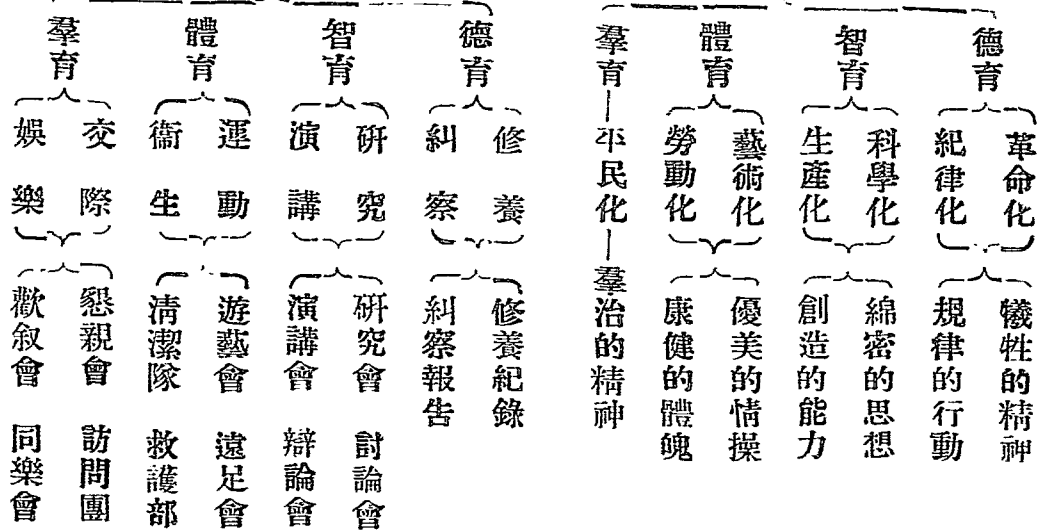 德育
革命化
紀律化
犧牲的精神
規律的行動
智育
科學化
生產化
綿密的思想
創造的能力
體育
藝術化
勞動化
優美的情操
康健的體魄
羣育
平民化
羣治的精神
德育
修養
糾察
修養紀錄
糾察報告
智育
研究
演講
研究會 討論會
演講會 辯論會
體育
運動
衞生
遊藝會 遠足會
清潔隊 救護部
羣育
交際
娛樂
懇親會 訪問團
歡叙會 同樂會